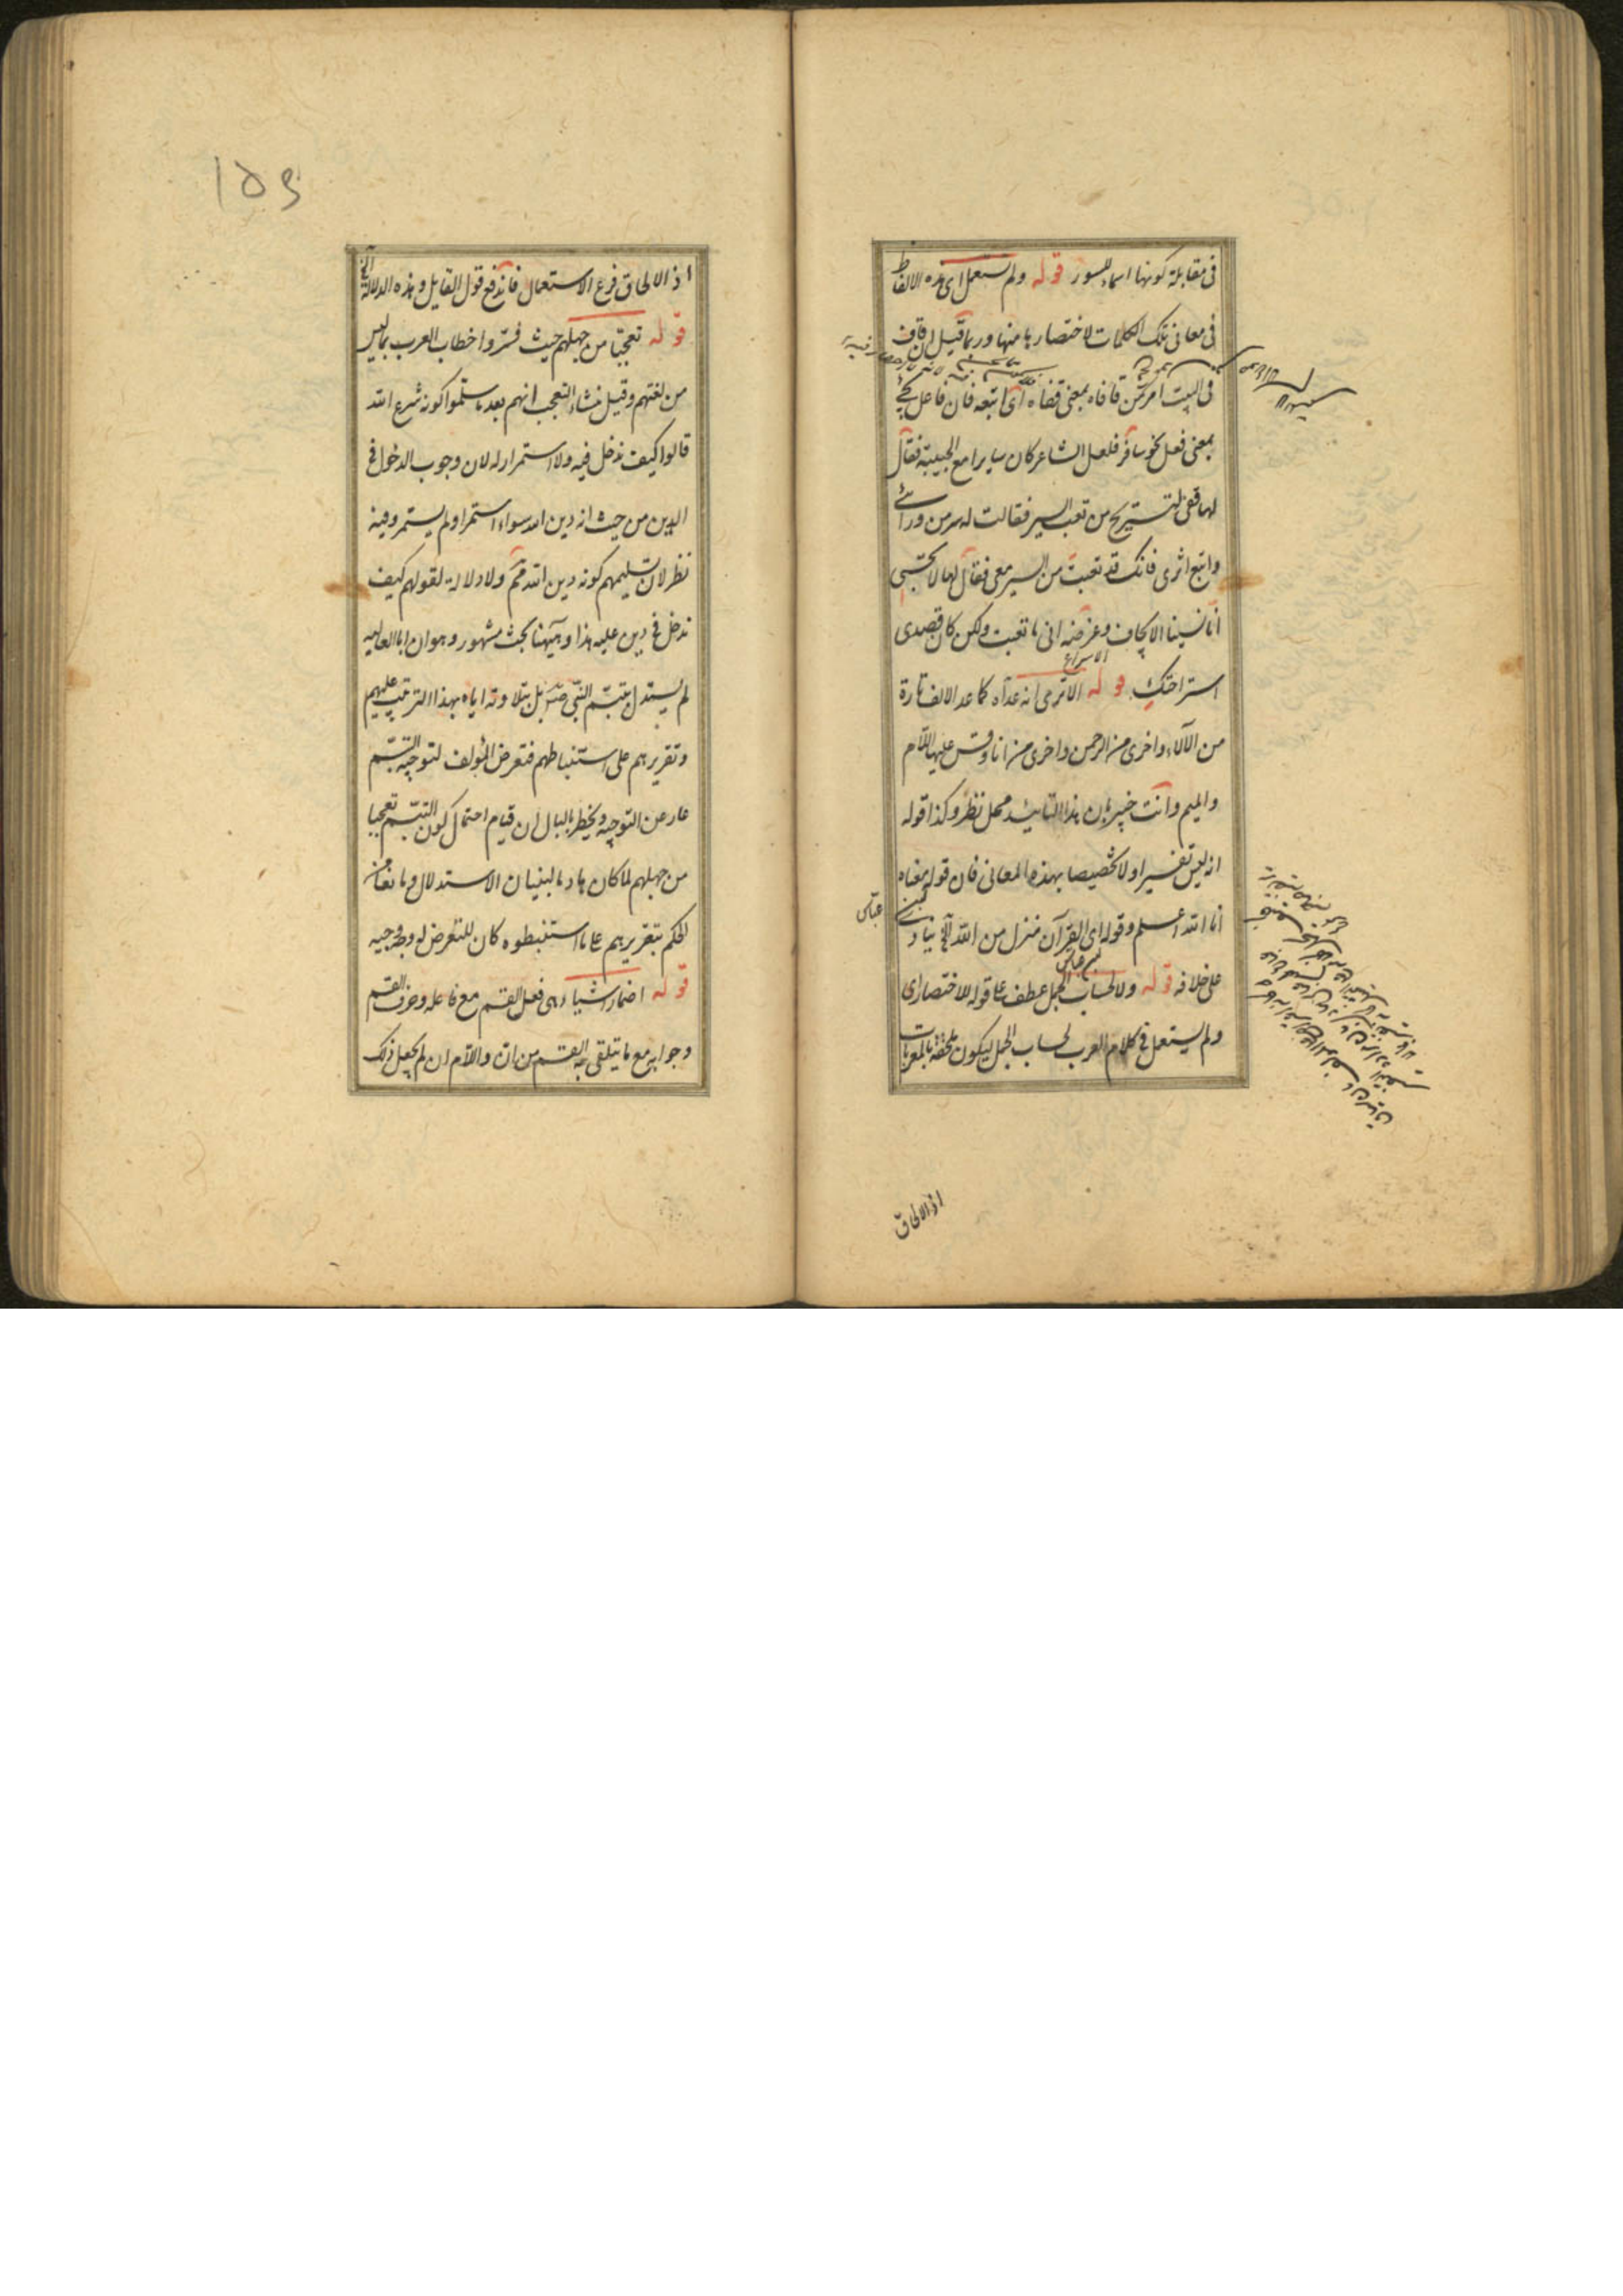 فى مقابلة كونها اسماء للسور قوله ولم تستعمل اى هذه الالفاظ
فى معانى تلك الكلمات لاختصارها منها وربما قيل ان قاف
فى البيت امر من قافاه بمعنى قفاه اى اتبعه فان فاعل يجئ
بمعنى فعل نحو سافر فلعل الشاعر كان سايرا مع الحبيبة فقال
لها قفى لتستريح من تعب السير فقالت له سر من ورائى
واتبع اثرى فانك قد تعبت من السير معى فقال لها لا تحسبى
انا نسينا الايجاف وغرضه انى ما تعبت ولكن كان قصدى
الاسراع
استراحتك قوله الا ترى انه عدّاه كما عد الالف تارة
من الآلاء واخرى من الرحمن واخرى من انا وقس عليها اللام
والميم وانت خبير بان هذا التاييد محل نظر وكذا قوله
انه ليس تفسيرا ولا تخصيصا بهذه المعانى فان قوله معناه
انا الله اعلم وقوله اى القرآن منزل من الله الخ ينادى
ابن عباس
على خلافه قوله ولا لحساب الجمل عطف على قوله للاختصار اى
ولم يستعمل فى كلام العرب لحساب الجمل ليكون ملحقة بالمعربات
اذ الالحاق
١٥٤
اذ الالحاق فرع الاستعمال فاندفع قول القايل وهذه الدلالة الخ
قوله تعجبا من جهلهم حيث فسروا خطاب العرب بما ليس
من لغتهم وقيل منشاء التعجب انهم بعد ما سلموا كونه شرع الله
قالوا كيف ندخل فيه ولا استمرار له لان وجوب الدخول فى
الدين من حيث انه دين الله سواء استمر او لم يستمر وفيه
نظر لان تسليمهم كونه دين الله مم ولا دلالة لقولهم كيف
ندخل فى دين عليه هذا وههنا بحث مشهور وهو ان ابا العاليه
لم يستدل بتبسّم النبى ص بل بتلاوته اياه بهذا الترتيب عليهم
وتقريرهم على استنباطهم فتعرض المؤلف لتوجيه التبسّم
عار عن التوجيه ويخطر بالبال ان قيام احتمال كون التبسّم تعجبا
من جهلهم لما كان هادما لبنيان الاستدلال ومانعا من
الحكم بتقريرهم على ما استنبطوه كان للتعرض له وجه وجيه
قوله اضمار اشياء هى فعل القسم مع فاعله وحرف القسم
وجوابه مع ما يتلقى به القسم من ان واللام ان لم يجعل ذلك